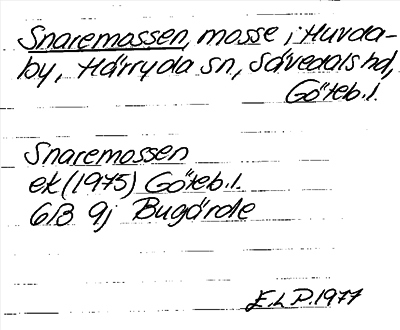 Snaremossen, mosse i Huvda-
by, Härryda sn, Sävedals hd,
Göteb. l.
Snaremossen
ek (1975) Göteb. l.
6B 9j Bugärde
E.L.P. 1977